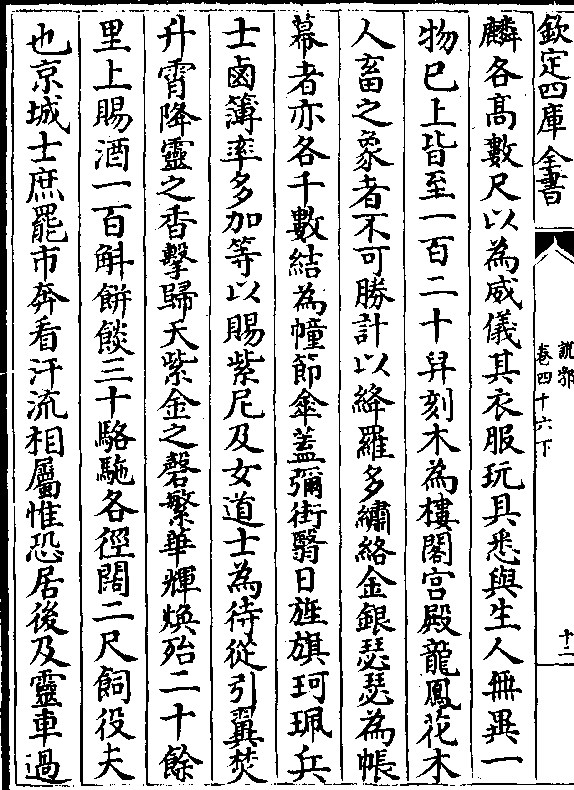 欽定四庫全書
説郛
卷四十六下
十二
麟各髙數尺以為威儀其衣服玩具悉與生人無異一
物已上皆至一百二十舁刻木為樓閣宫殿龍鳳花木
人畜之象者不可勝計以絳羅多繡絡金銀瑟瑟為帳
幕者亦各千數結為幢節傘蓋彌街翳日旌旗珂珮兵
士鹵簿率多加等以賜紫尼及女道士為待從引翼焚
升霄降靈之香擊歸天紫金之磬繁華輝煥殆二十餘
里上賜酒一百斛餅餤三十駱駞各徑闊二尺飼役夫
也京城士庶罷市奔看汗流相屬惟恐居後及靈車過